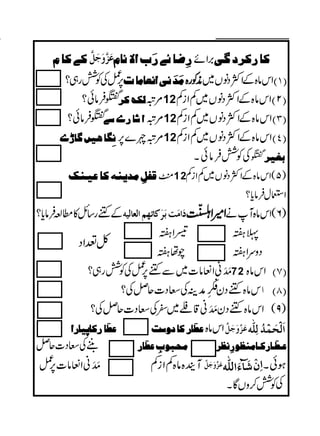 کارکردگی برائے رِضائے رَبُّ الانام عَزَّوَجَلَّ کے کام
(۱) اس ماہ کے اکثر دنوں میں مذکورہ مَدَنی انعامات پر عمل کی کوشش رہی؟
(۲) اس ماہ کے اکثر دنوں میں کم از کم 12 مرتبہ لکھ کر گفتگو فرمائی؟
(۳) اس ماہ کے اکثر دنوں میں کم از کم 12 مرتبہ اشارے سے گفتگو فرمائی؟
(۴) اس ماہ کے اکثر دنوں میں کم از کم 12 مرتبہ چہرے پر نگاہیں گاڑے
بغیر گفتگو کی کوشش فرمائی۔
(۵) اس ماہ کے اکثر دنوں میں کم از کم 12 منٹ قفلِ مدینہ کا عینک
استعمال فرمایا؟
(۶) اس ماہ آپ نے امیرِ اہلسنّت دَامَتْ بَرَکَاتُہُمُ العالیہ کے کتنے رسائل کا مطالعہ فرمایا؟
پہلا ہفتہ تیسرا ہفتہ
دوسرا ہفتہ چوتھا ہفتہ کل تعداد
(۷) اس ماہ 72 مَدَنی انعامات میں سے کتنے پر عمل کی کوشش رہی؟
(۸) اس ماہ کتنے دن فکرِ مدینہ کی سعادت حاصل کی؟
(۹) اس ماہ کتنے دن مَدَنی قافلے میں سفر کی سعادت حاصل کی؟
اَلْحَمْدُ لِلّٰہ عَزَّوَجَلَّ اس ماہ عطّار کا دوست عطّار کا پیارا
عطّار کا منظورِ نظر محبوبِ عطّار بننے کی سعادت حاصل
ہوئی۔ اِنْ شَآءَ اللّٰہ عَزَّوَجَلَّ آیندہ ماہ کم از کم مَدَنی انعامات پر عمل
کی کوشش کروں گا۔